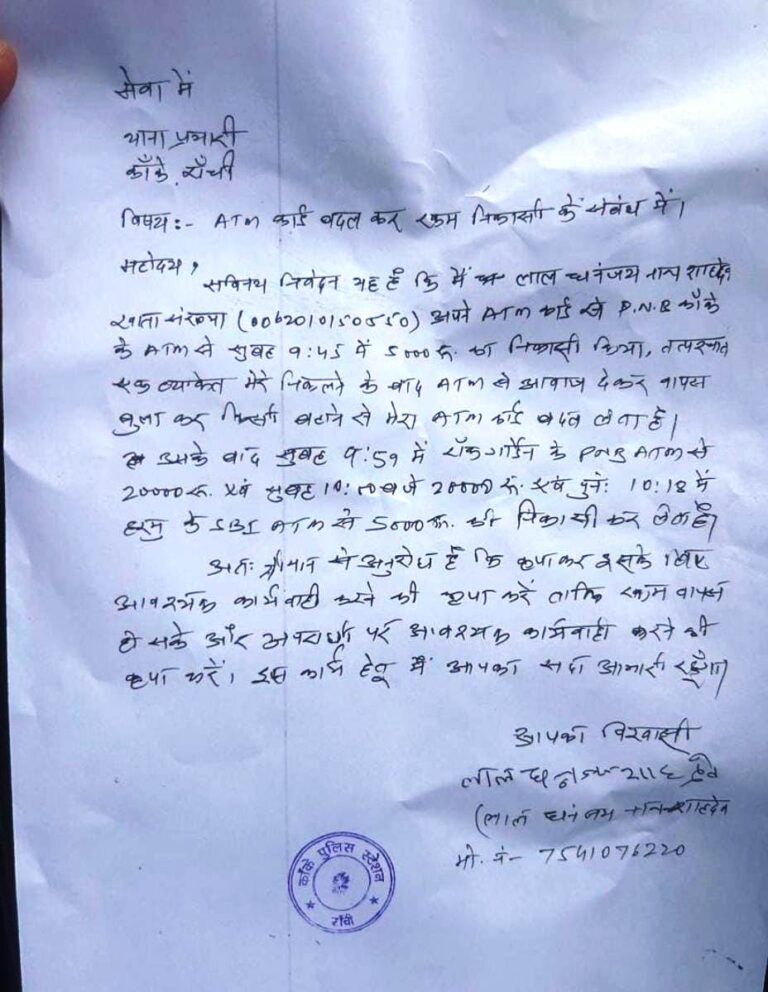 सेवा में
थाना प्रभारी
काँके, राँची
विषय:- ATM कार्ड बदल कर रकम निकासी के संबंध में।
महोदय,
सविनय निवेदन यह है कि मैं लाल धनंजय नाथ शाहदेव
खाता संख्या (0062010150550) अपने ATM कार्ड से P.N.B काँके
के ATM से सुबह 9:45 में 5000 रू. का निकासी किया, तत्पश्चात
एक व्यक्ति मेरे निकलने के बाद ATM से आवाज देकर वापस
बुला कर बहाने से मेरा ATM कार्ड बदल लेता है।
उसके बाद सुबह 9:59 में रॉक गार्डेन के PNB ATM से
20000 रू. एवं सुबह 10:10 बजे 20000 रू. एवं पुनः 10:18 में
हरमु के SBI ATM से 5000 रू. की निकासी कर लेता है।
अतः श्रीमान से अनुरोध है कि कृपा कर इसके लिए
आवश्यक कार्यवाही करने की कृपा करें ताकि रकम वापस
हो सके और अपराधी पर आवश्यक कार्यवाही करने की
कृपा करें। इस कार्य हेतू मैं आपका सदा आभारी रहूँगा।
आपका विश्वासी
लाल धनंजय शाहदेव
(लाल धनंजय नाथ शाहदेव
मो. नं- 7541076220
काँके पुलिस स्टेशन
राँची